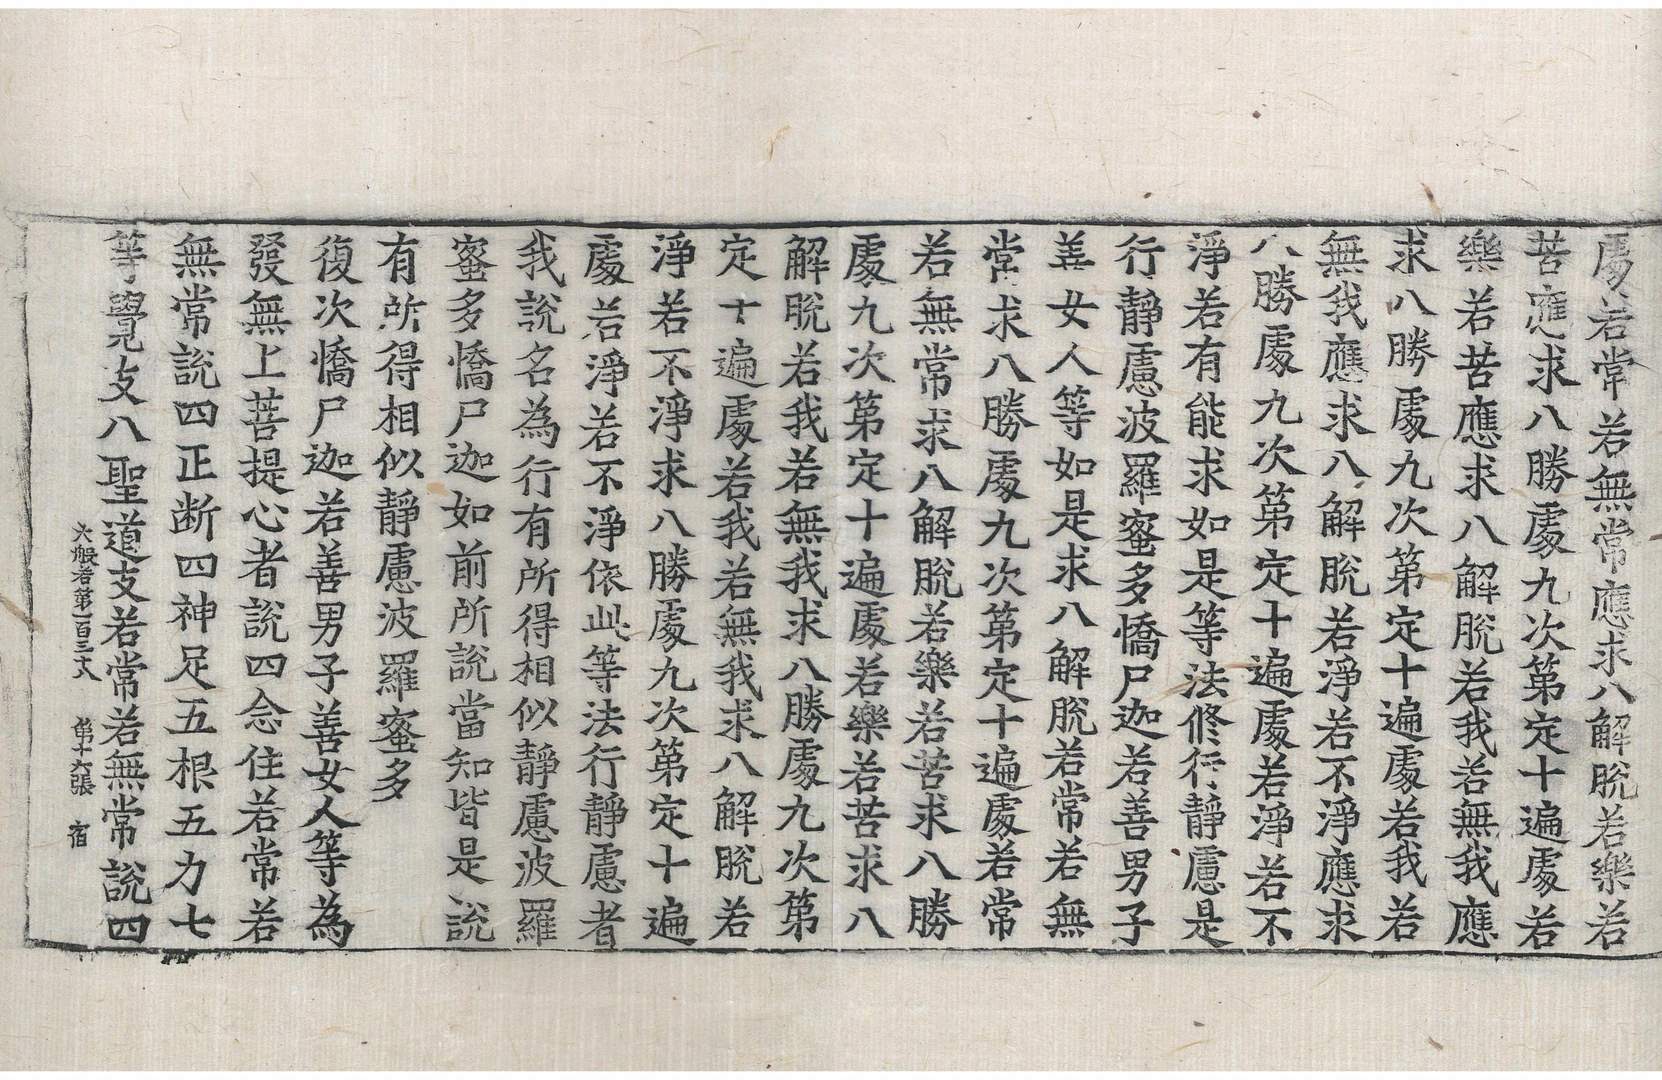 處若常若無常應求八解脫若樂若
苦應求八勝處九次第定十遍處若
樂若苦應求八解脫若我若無我應
求八勝處九次第定十遍處若我若
無我應求八解脫若淨若不淨應求
八勝處九次第定十遍處若淨若不
淨若有能求如是等法修行靜慮是
行靜慮波羅蜜多憍尸迦若善男子
善女人等如是求八解脫若常若無
常求八勝處九次第定十遍處若常
若無常求八解脫若樂若苦求八勝
處九次第定十遍處若樂若苦求八
解脫若我若無我求八勝處九次第
定十遍處若我若無我求八解脫若
淨若不淨求八勝處九次第定十遍
處若淨若不淨依此等法行靜慮者
我說名為行有所得相似靜慮波羅
蜜多憍尸迦如前所說當知皆是說
有所得相似靜慮波羅蜜多
復次憍尸迦若善男子善女人等為
發無上菩提心者說四念住若常若
無常說四正断四神足五根五力七
等覺支八聖道支若常若無常說四
大般若第一百三 第十六張 宿